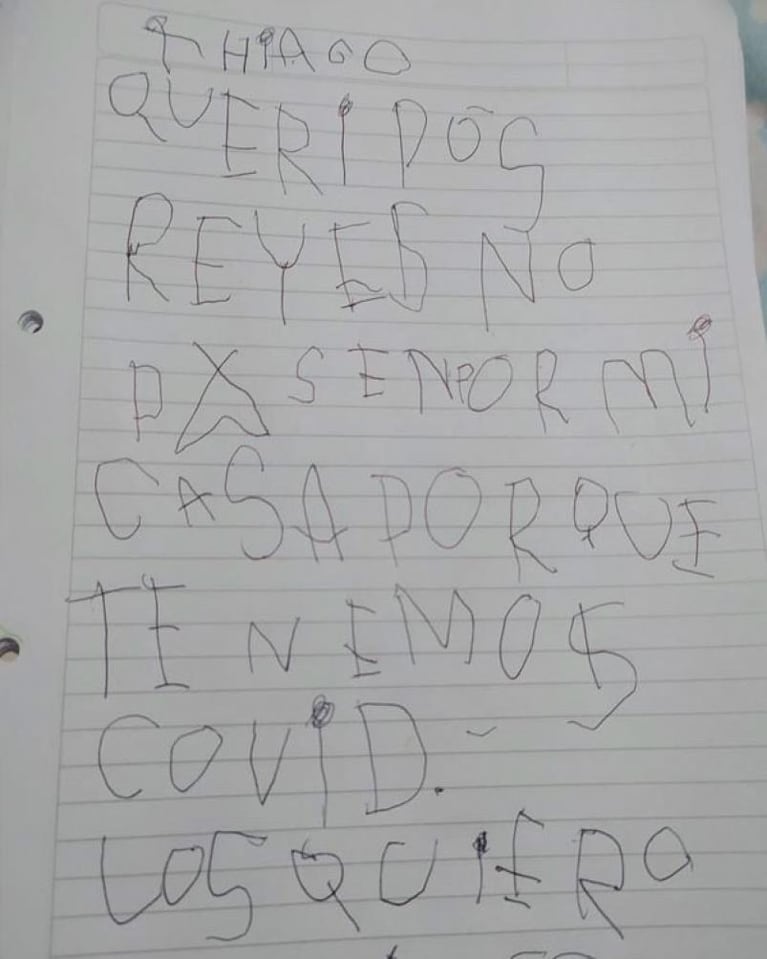 THIAGO
QUERIDOS
REYES NO
PASEN POR MI
CASA PORQUE
TENEMOS
COVID.
LOS QUIERO